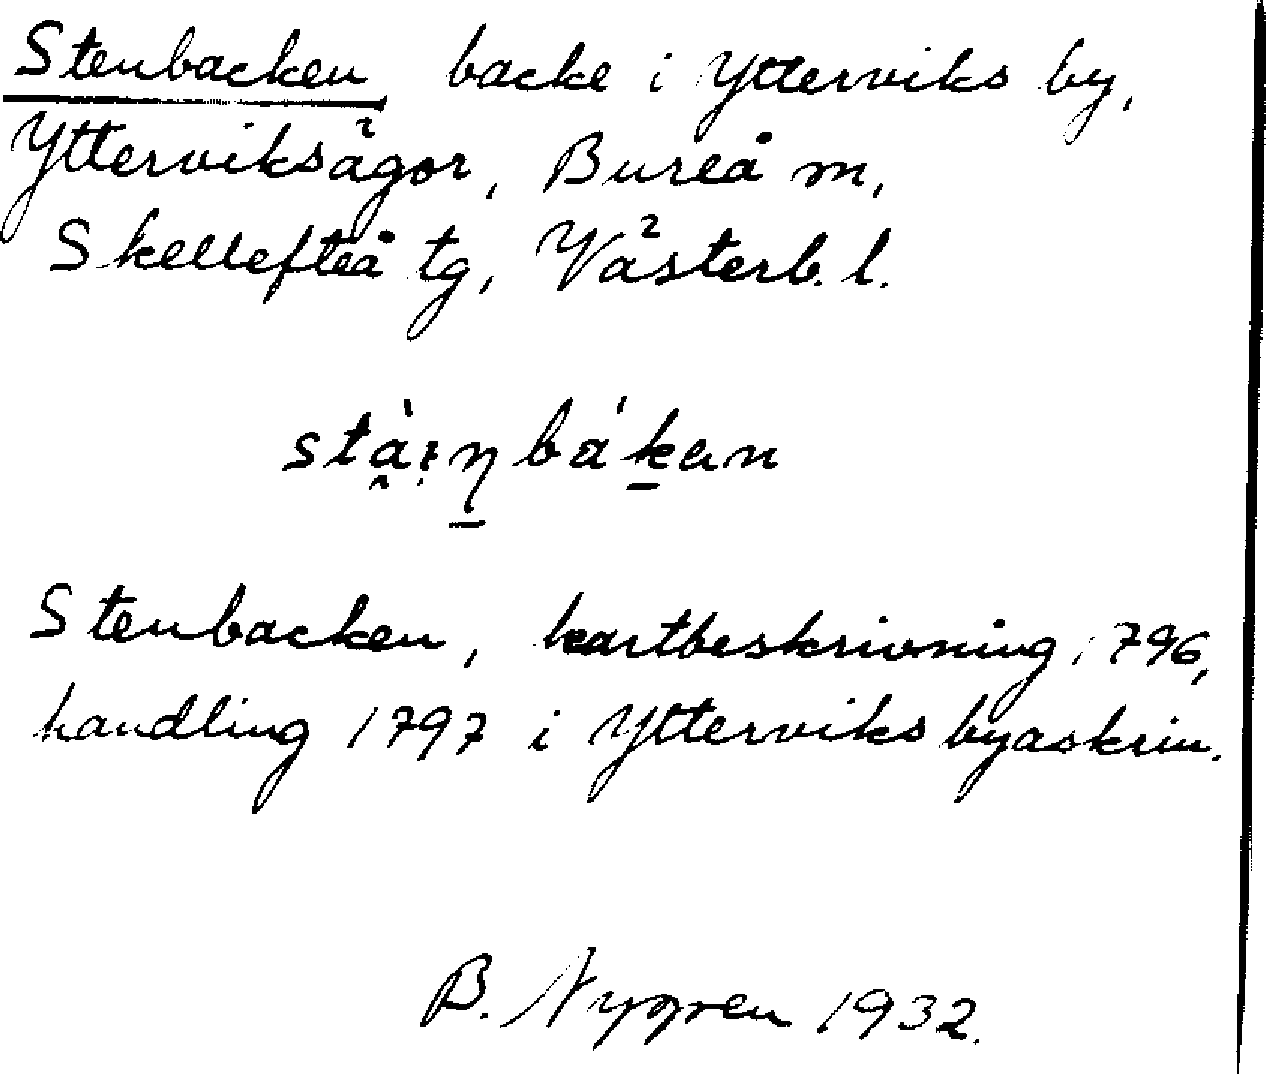 Stenbacken backe i Ytterviks by,
Ytterviksägor, Bureå m,
Skellefteå tg, Västerb. l.
Stenbacken, kartbeskrivning 1796,
handling 1797 i Ytterviks byaskrin.
B. Nygren 1932.